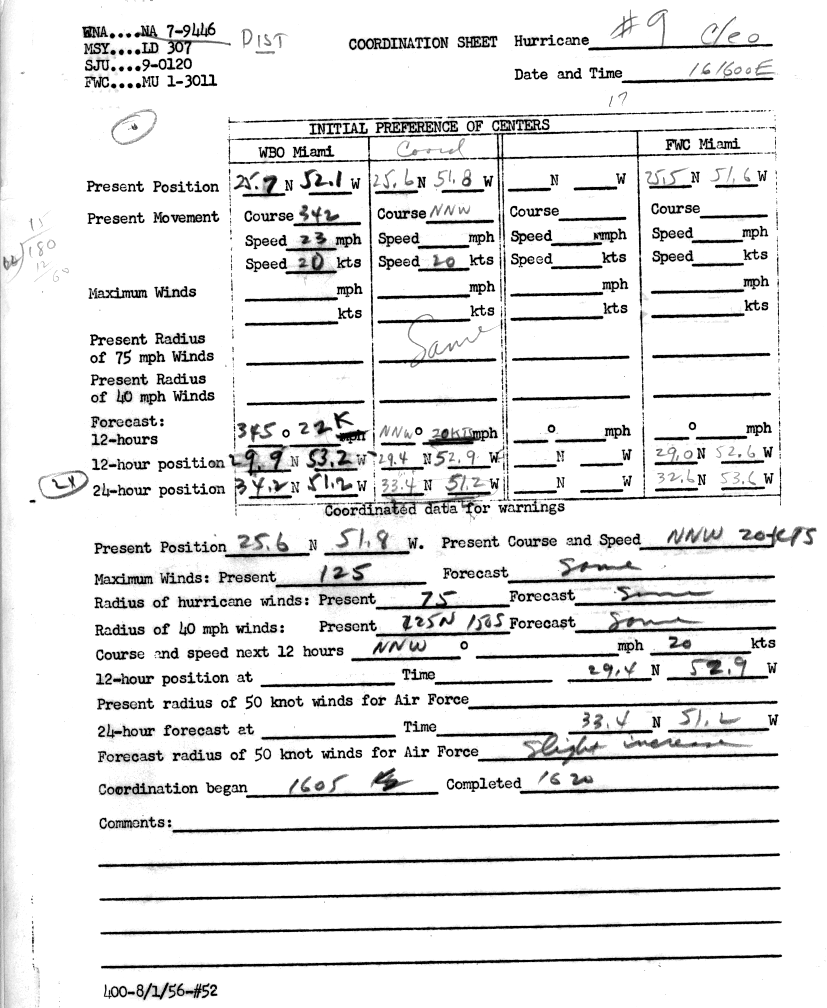 WNA....NA 7-9446
MSY....LD 307
SJU....9-0120
FWC....MU 1-3011
DIST
COORDINATION SHEET Hurricane #9 Cleo
Date and Time 161600E
17
INITIAL PREFERENCE OF CENTERS
WBO Miami Coord FWC Miami
Present Position 25.7 N 52.1 W 25.6 N 51.8 W ___ N ___ W 25.5 N 51.6 W
Present Movement Course 342 Course NNW Course Course
Speed 23 mph Speed mph Speed mph Speed mph
Speed 20 kts Speed 20 kts Speed kts Speed kts
15
180
12
60
Maximum Winds mph mph mph mph
kts kts kts kts
Present Radius
of 75 mph Winds
Same
Present Radius
of 40 mph Winds
Forecast:
12-hours 345 o 22 K mph NNW o 20KTS mph o mph o mph
12-hour position 29.9 N 53.2 W 29.4 N 52.9 W N W 29.0 N 52.6 W
24-hour position 34.2 N 51.2 W 33.4 N 51.2 W N W 32.6 N 53.6 W
Coordinated data for warnings
Present Position 25.6 N 51.8 W. Present Course and Speed NNW 20 KTS
Maximum Winds: Present 125 Forecast Same
Radius of hurricane winds: Present 75 Forecast Same
Radius of 40 mph winds: Present 225N 150S Forecast Same
Course and speed next 12 hours NNW o mph 20 kts
12-hour position at Time 29.4 N 52.9 W
Present radius of 50 knot winds for Air Force
24-hour forecast at Time 33.4 N 51.2 W
Forecast radius of 50 knot winds for Air Force Slight increase
Coordination began 1605 Completed 1620
Comments:
400-8/1/56-#52